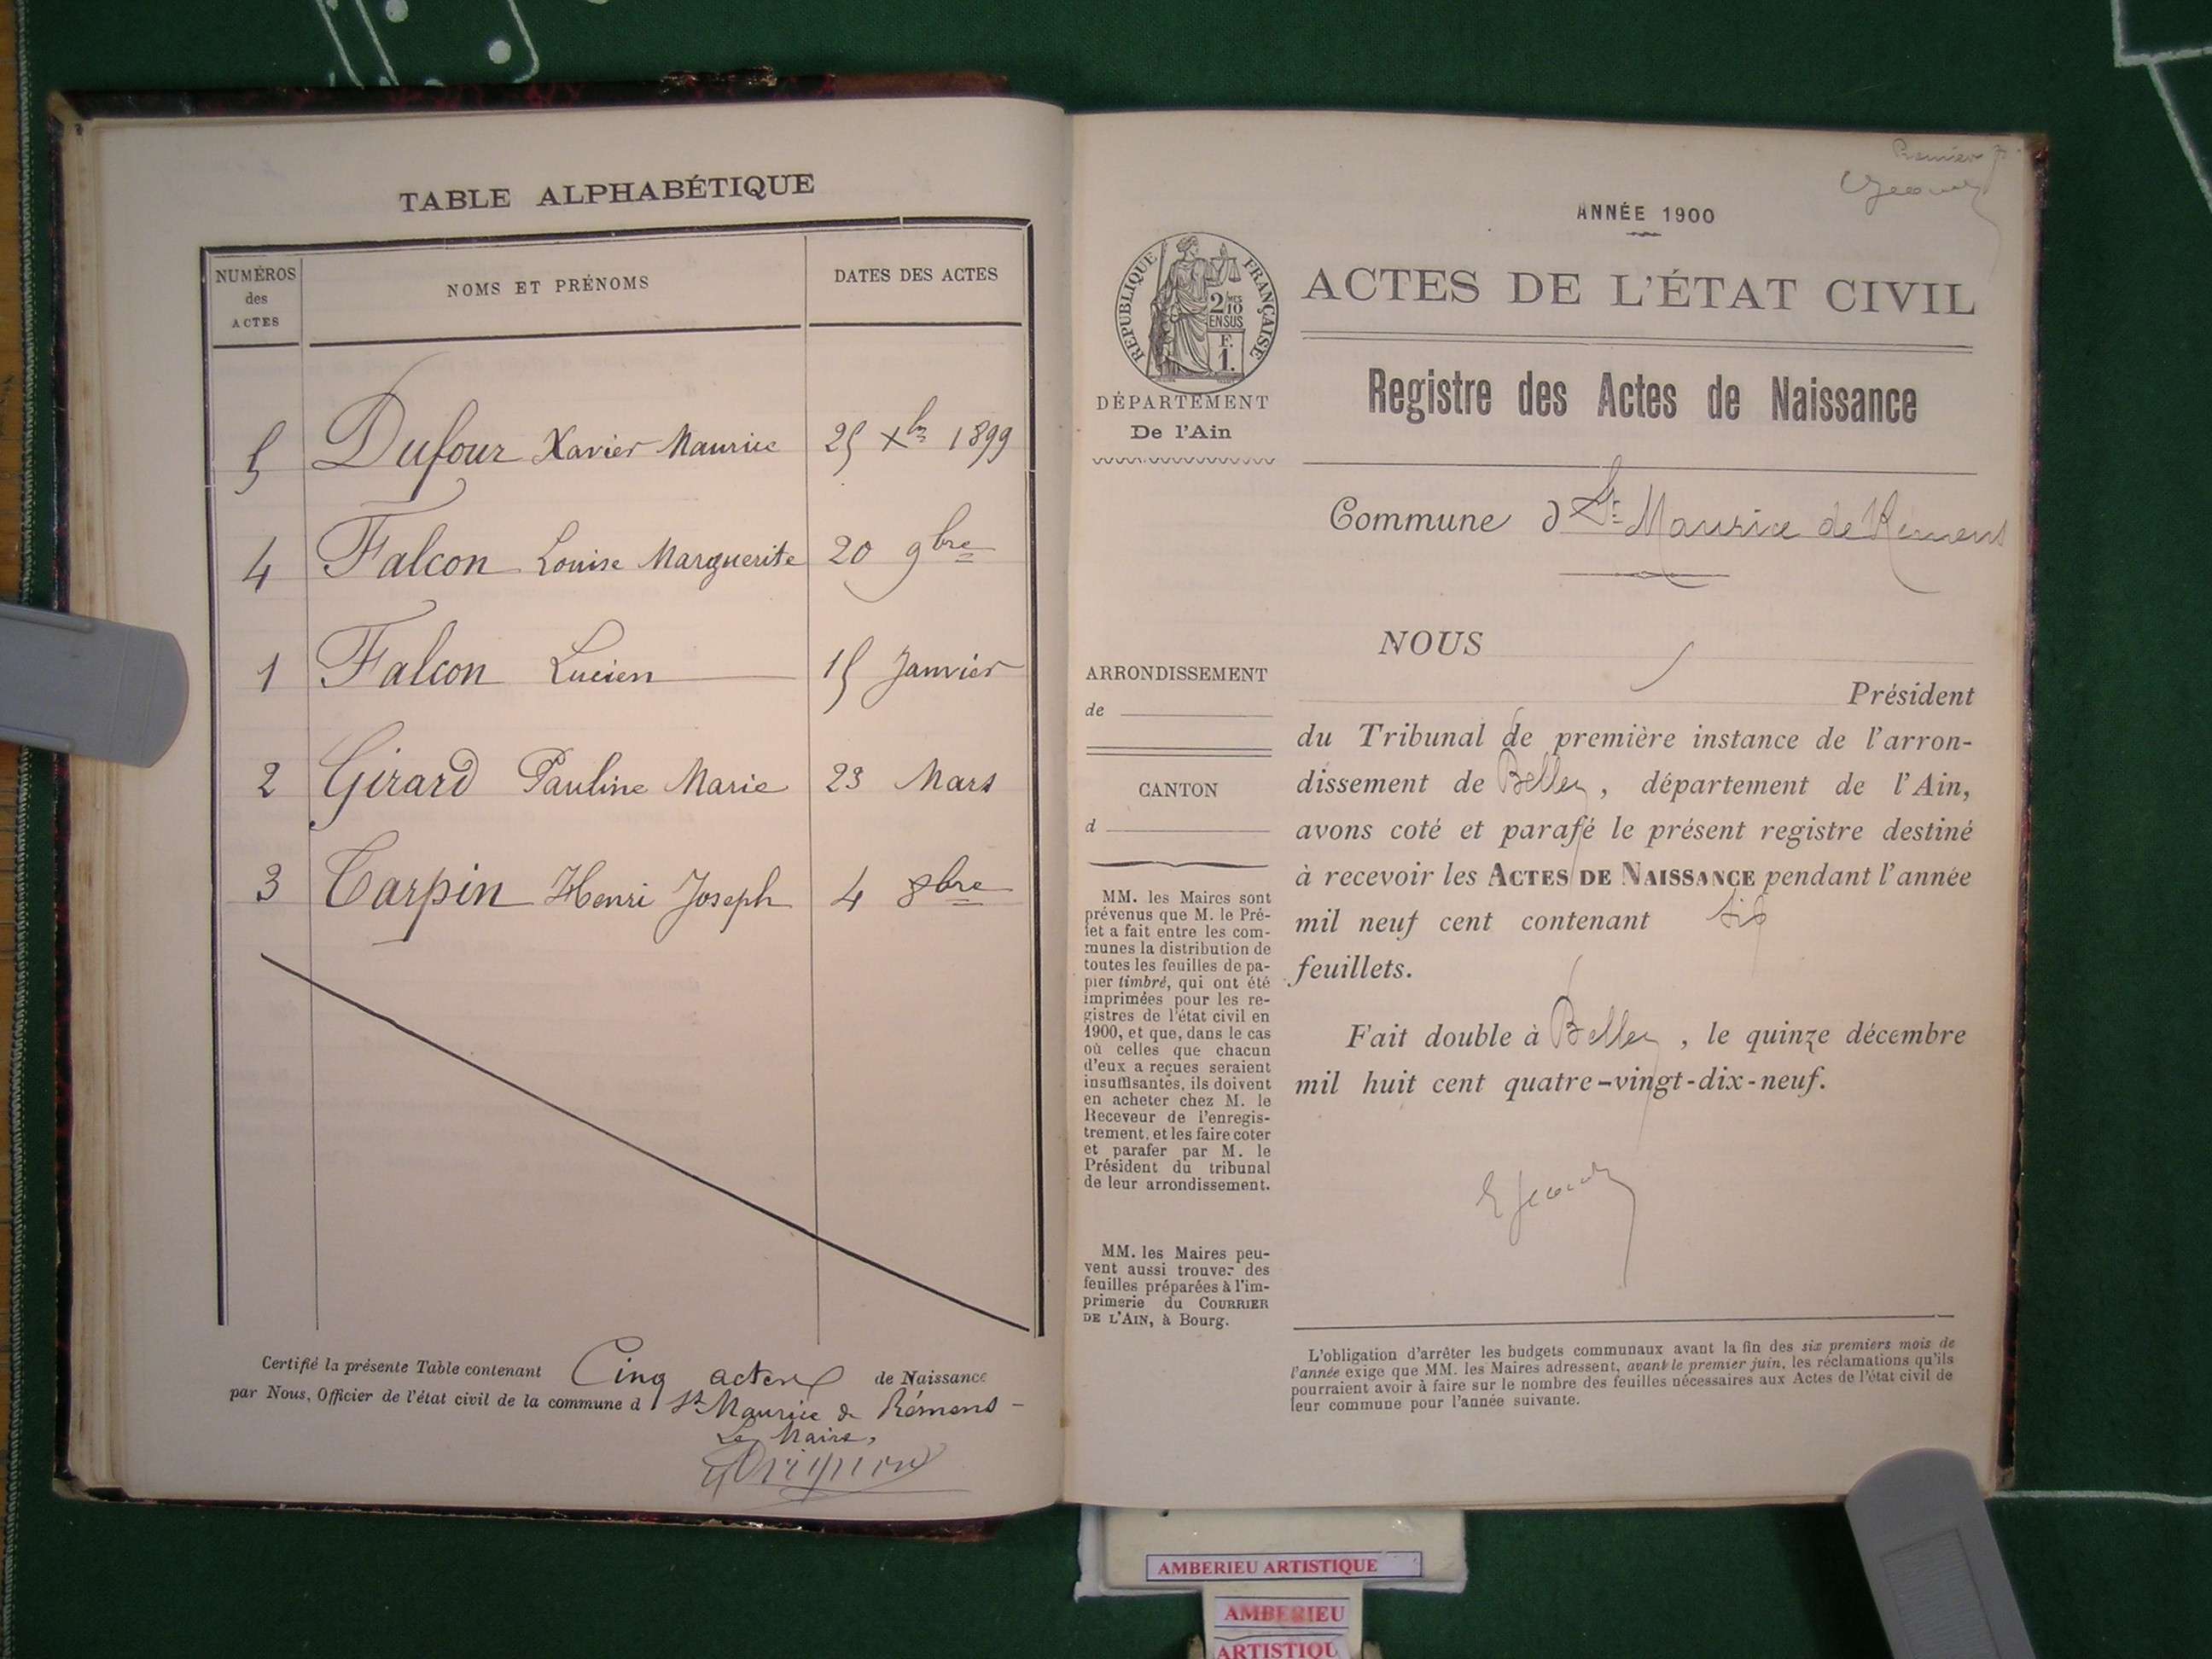 TABLE ALPHABÉTIQUE
NUMÉROS
des
ACTES
NOMS ET PRÉNOMS
DATES DES ACTES
5 Dufour Xavier Maurice 25 Xbre 1899
4 Falcon Louise Marguerite 20 9bre
1 Falcon Lucien 15 Janvier
2 Girard Pauline Marie 23 Mars
3 Carpin Henri Joseph 4 8bre
Certifié la présente Table contenant Cinq actes de Naissance
par Nous, Officier de l'état civil de la commune d St Maurice de Rémens
Le Maire,
Premier f.
ANNÉE 1900
RÉPUBLIQUE FRANÇAISE
2/10 mes
EN SUS
F.
1.
ACTES DE L'ÉTAT CIVIL
DÉPARTEMENT
De l'Ain
Registre des Actes de Naissance
Commune d St Maurice de Rémens
ARRONDISSEMENT
de
CANTON
d
MM. les Maires sont
prévenus que M. le Pré-
fet a fait entre les com-
munes la distribution de
toutes les feuilles de pa-
pier timbré, qui ont été
imprimées pour les re-
gistres de l'état civil en
1900, et que, dans le cas
où celles que chacun
d'eux a reçues seraient
insuffisantes, ils doivent
en acheter chez M. le
Receveur de l'enregis-
trement, et les faire coter
et parafer par M. le
Président du tribunal
de leur arrondissement.
MM. les Maires peu-
vent aussi trouver des
feuilles préparées à l'im-
primerie du COURRIER
DE L'AIN, à Bourg.
NOUS
Président
du Tribunal de première instance de l'arron-
dissement de Belley, département de l'Ain,
avons coté et parafé le présent registre destiné
à recevoir les ACTES DE NAISSANCE pendant l'année
mil neuf cent contenant six
feuillets.
Fait double à Belley, le quinze décembre
mil huit cent quatre-vingt-dix-neuf.
L'obligation d'arrêter les budgets communaux avant la fin des six premiers mois de
l'année exige que MM. les Maires adressent, avant le premier juin, les réclamations qu'ils
pourraient avoir à faire sur le nombre des feuilles nécessaires aux Actes de l'état civil de
leur commune pour l'année suivante.
AMBERIEU ARTISTIQUE
AMBERIEU
ARTISTIQU